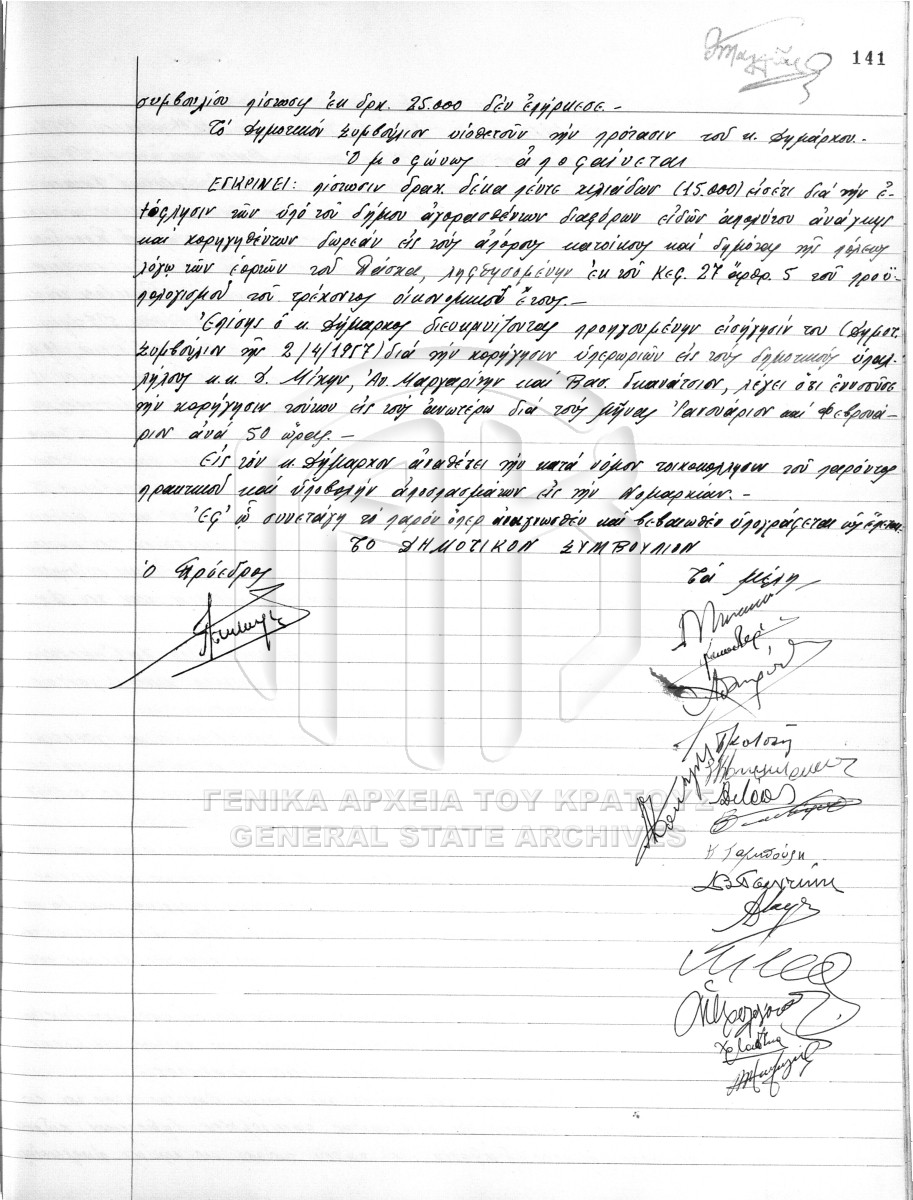 141
συμβουλίου πίστωσις ἐκ δρχ. 25.000 δέν ἐπήρκεσε.-
Τό Δημοτικόν Συμβούλιον υἱοθετοῦν τήν πρότασιν τοῦ κ. Δημάρχου.-
Ὁμοφώνως ἀποφαίνεται
ΕΓΚΡΙΝΕΙ: πίστωσιν δραχ. δέκα πέντε χιλιάδων (15.000) εἰσέτι διά τήν ἐ-
ξόφλησιν τῶν ὑπό τοῦ δήμου ἀγορασθέντων διαφόρων εἰδῶν ἀπολύτου ἀνάγκης
καί χορηγηθέντων δωρεάν εἰς τούς ἀπόρους κατοίκους καί δημότας τῆς πόλεως
λόγω τῶν ἑορτῶν τοῦ Πάσχα, ληφθησομένην ἐκ τοῦ Κεφ. 27 ἄρθρ. 5 τοῦ προϋ-
πολογισμοῦ τοῦ τρέχοντος οἰκονομικοῦ ἔτους.-
Ἐπίσης ὁ κ. Δήμαρχος διευκρινίζοντας προηγουμένην εἰσήγησίν του (Δημοτ.
Συμβούλιον τῆς 2/4/1957) διά τήν χορήγησιν ὑπερωριῶν εἰς τούς δημοτικούς ὑπαλ-
λήλους κ.κ. Δ. Μίχην, Ἀν. Μαργαρίτην καί Βασ. , λέγει ὅτι ἐννοοῦσε
τήν χορήγησιν τούτων εἰς τούς ἀνωτέρω διά τούς μῆνας Ἰανουάριον καί Φεβρουά-
ριον ἀνά 50 ὥρας.-
Εἰς τόν κ. Δήμαρχον ἀναθέτει τήν κατά νόμον τοιχοκόλλησιν τοῦ παρόντος
πρακτικοῦ καί ὑποβολήν ἀποσπασμάτων εἰς τήν Νομαρχίαν.-
Ἐφ' ᾧ συνετάγη τό παρόν ὅπερ ἀναγνωσθέν καί βεβαιωθέν ὑπογράφεται ὡς ἕπεται
ΤΟ ΔΗΜΟΤΙΚΟΝ ΣΥΜΒΟΥΛΙΟΝ
Ὁ Πρόεδρος
Τά μέλη
ΓΕΝΙΚΑ ΑΡΧΕΙΑ ΤΟΥ ΚΡΑΤΟΥΣ
GENERAL STATE ARCHIVES